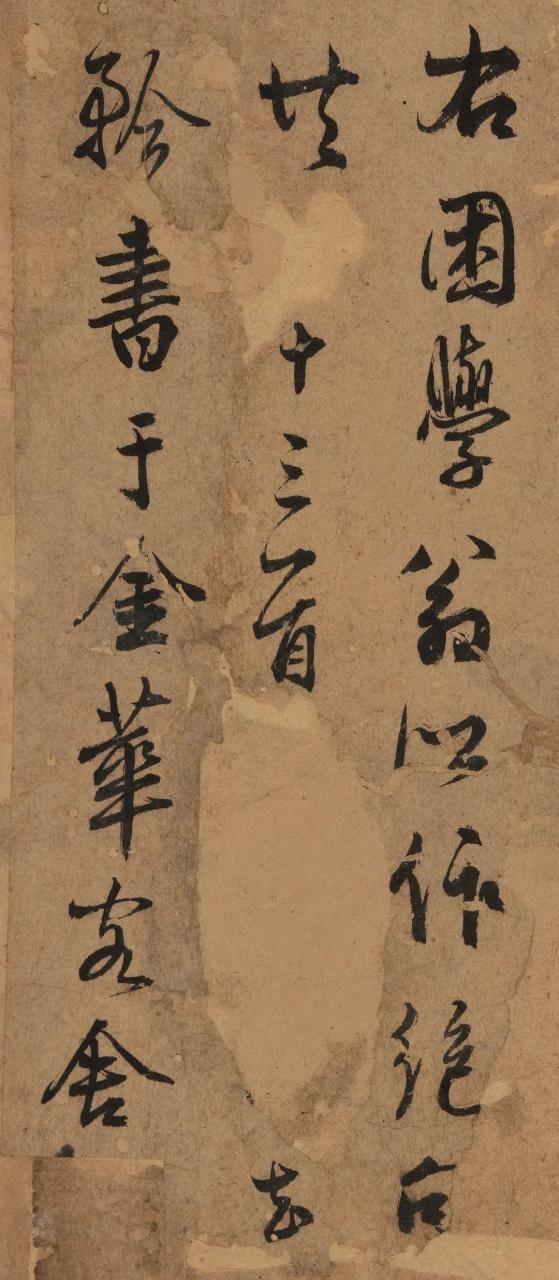 右困學翁所作絕句
共十三首去
矜書于金華客舍